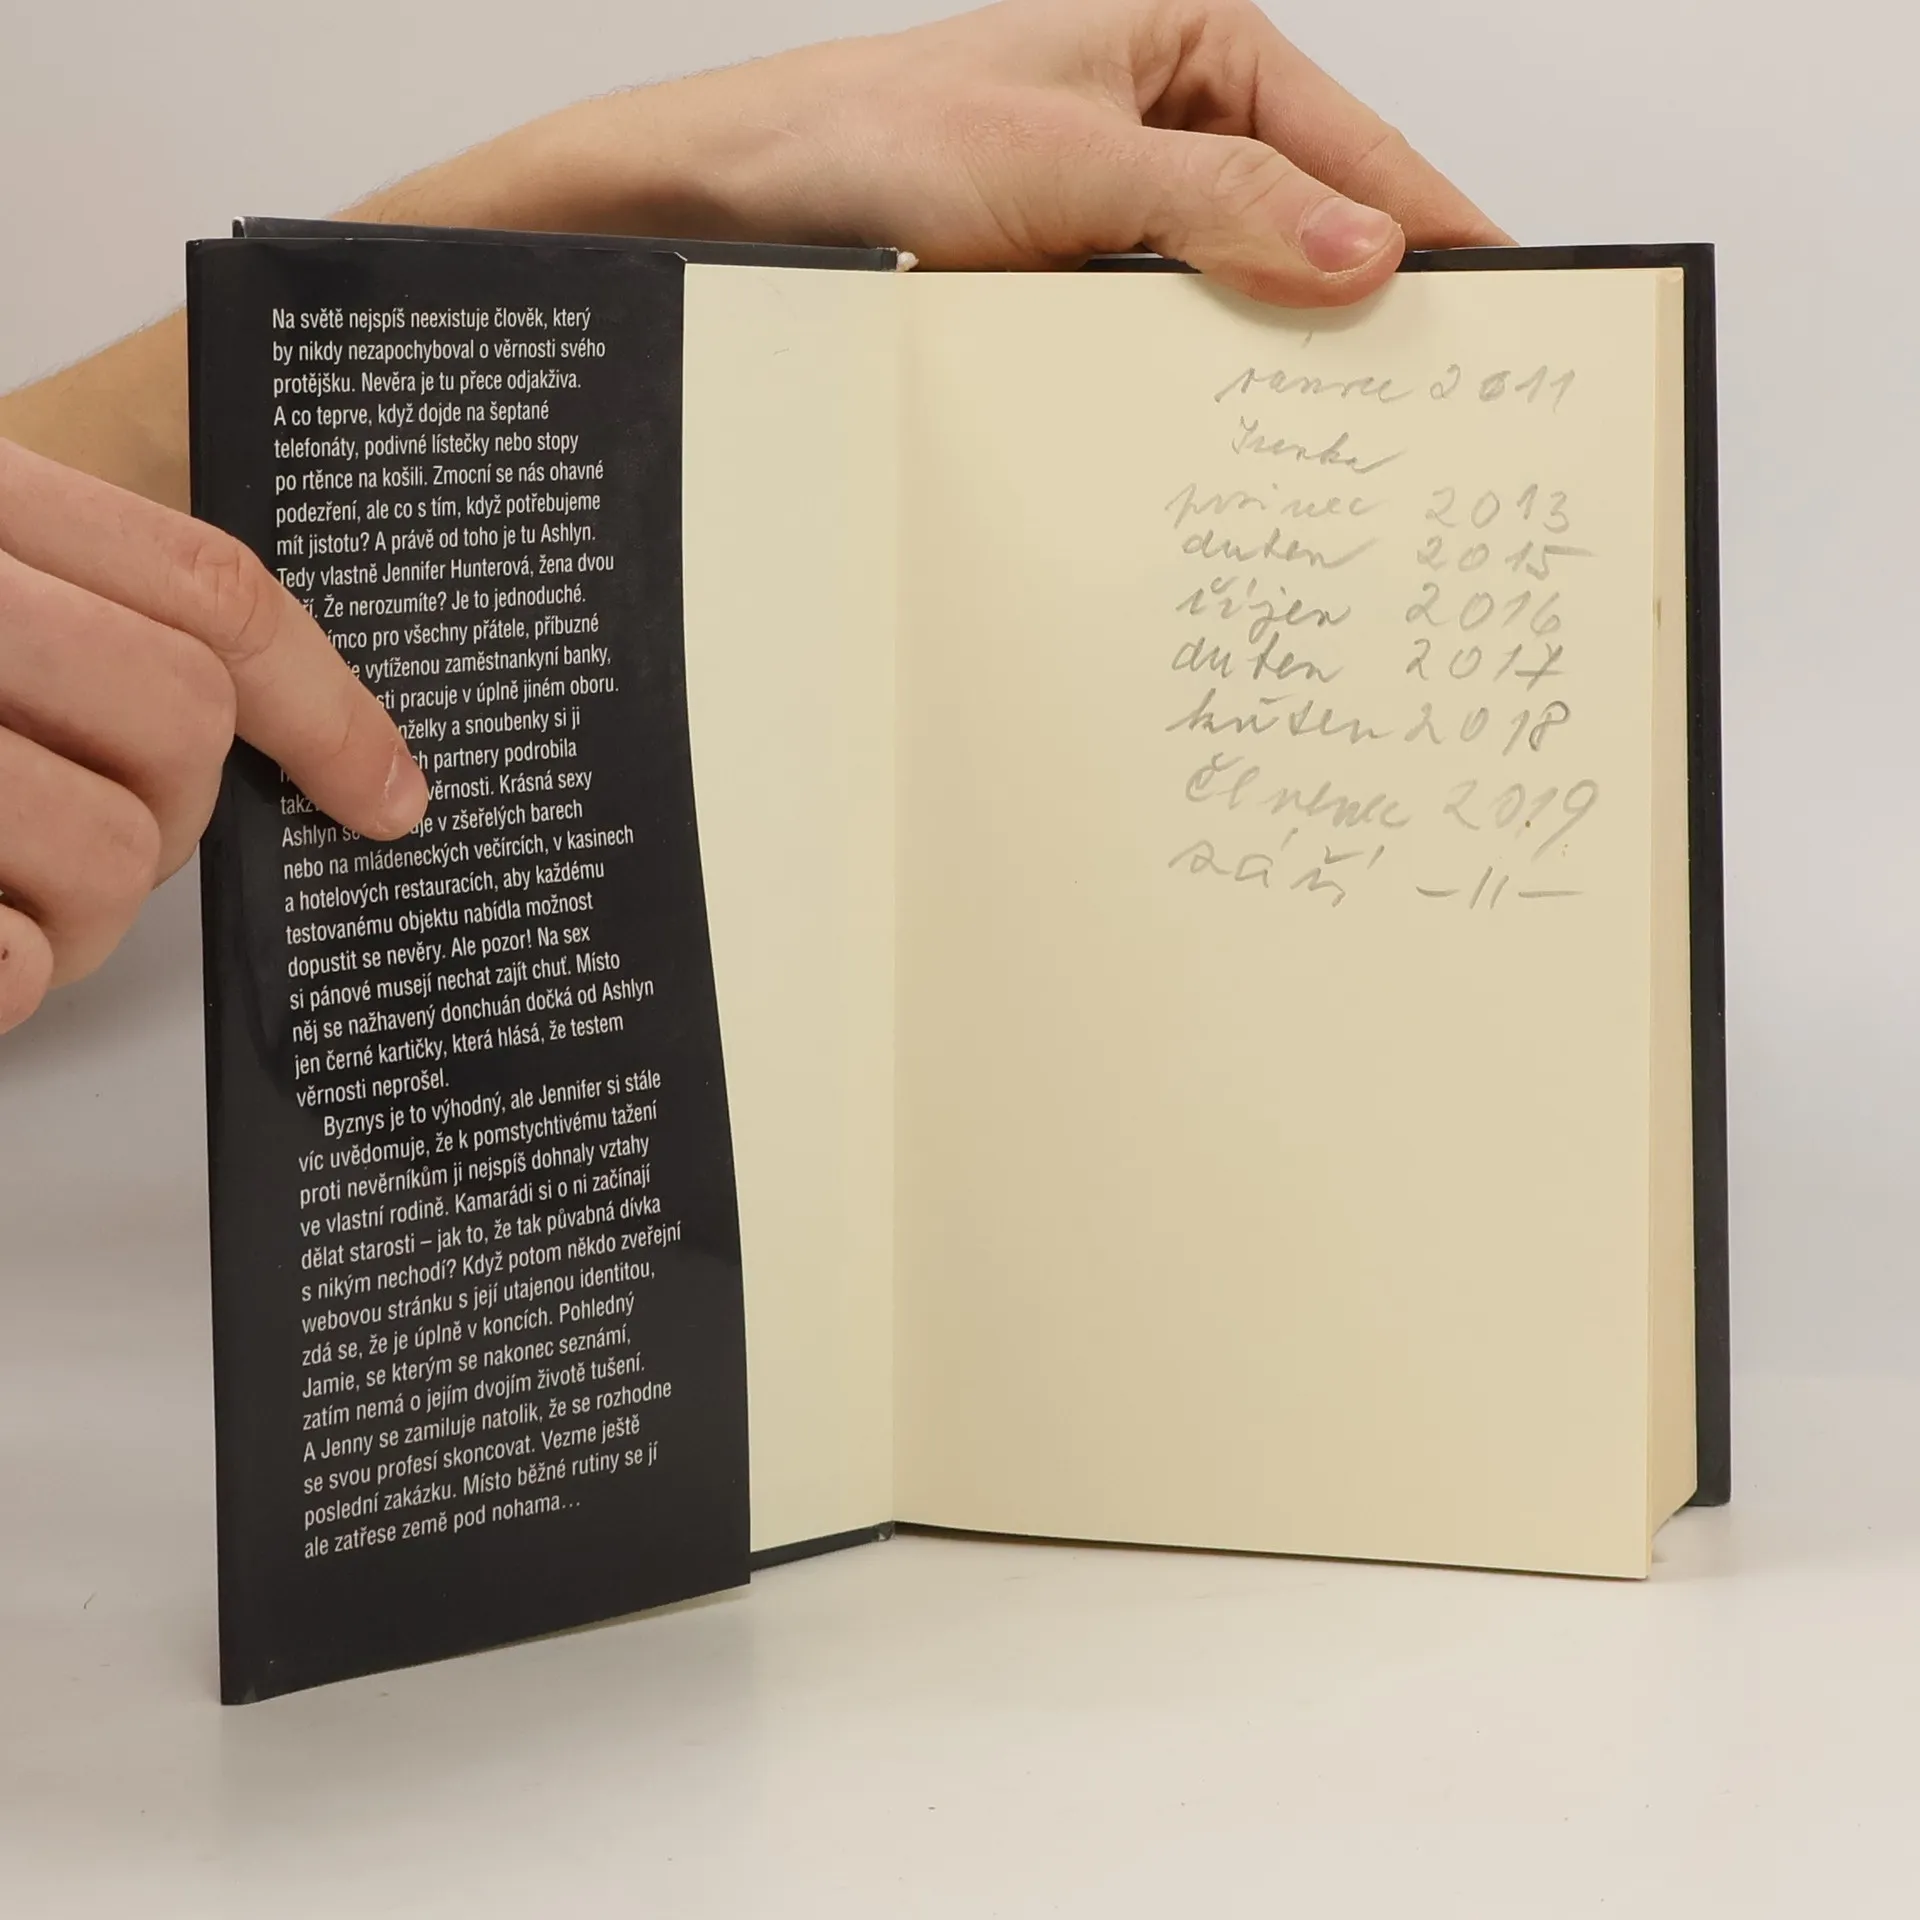 Na světě nejspíš neexistuje člověk, který
by nikdy nezapochyboval o věrnosti svého
protějšku. Nevěra je tu přece odjakživa.
A co teprve, když dojde na šeptané
telefonáty, podivné lístečky nebo stopy
po rtěnce na košili. Zmocní se nás ohavné
podezření, ale co s tím, když potřebujeme
mít jistotu? A právě od toho je tu Ashlyn.
Tedy vlastně Jennifer Hunterová, žena dvou
Že nerozumíte? Je to jednoduché.
pro všechny přátele, příbuzné
vytíženou zaměstnankyní banky,
pracuje v úplně jiném oboru.
a snoubenky si ji
partnery podrobila
věrnosti. Krásná sexy
Ashlyn v zšeřelých barech
nebo na mládeneckých večírcích, v kasinech
a hotelových restauracích, aby každému
testovanému objektu nabídla možnost
dopustit se nevěry. Ale pozor! Na sex
si pánové musejí nechat zajít chuť. Místo
něj se nažhavený donchuán dočká od Ashlyn
jen černé kartičky, která hlásá, že testem
věrnosti neprošel.
Byznys je to výhodný, ale Jennifer si stále
víc uvědomuje, že k pomstychtivému tažení
proti nevěrníkům ji nejspíš dohnaly vztahy
ve vlastní rodině. Kamarádi si o ni začínají
dělat starosti – jak to, že tak půvabná dívka
s nikým nechodí? Když potom někdo zveřejní
webovou stránku s její utajenou identitou,
zdá se, že je úplně v koncích. Pohledný
Jamie, se kterým se nakonec seznámí,
zatím nemá o jejím dvojím životě tušení.
A Jenny se zamiluje natolik, že se rozhodne
se svou profesí skoncovat. Vezme ještě
poslední zakázku. Místo běžné rutiny se jí
ale zatřese země pod nohama…
2011
Irenka
prosinec 2013
duben 2015
říjen 2016
duben 2017
květen 2018
červenec 2019
září –11–